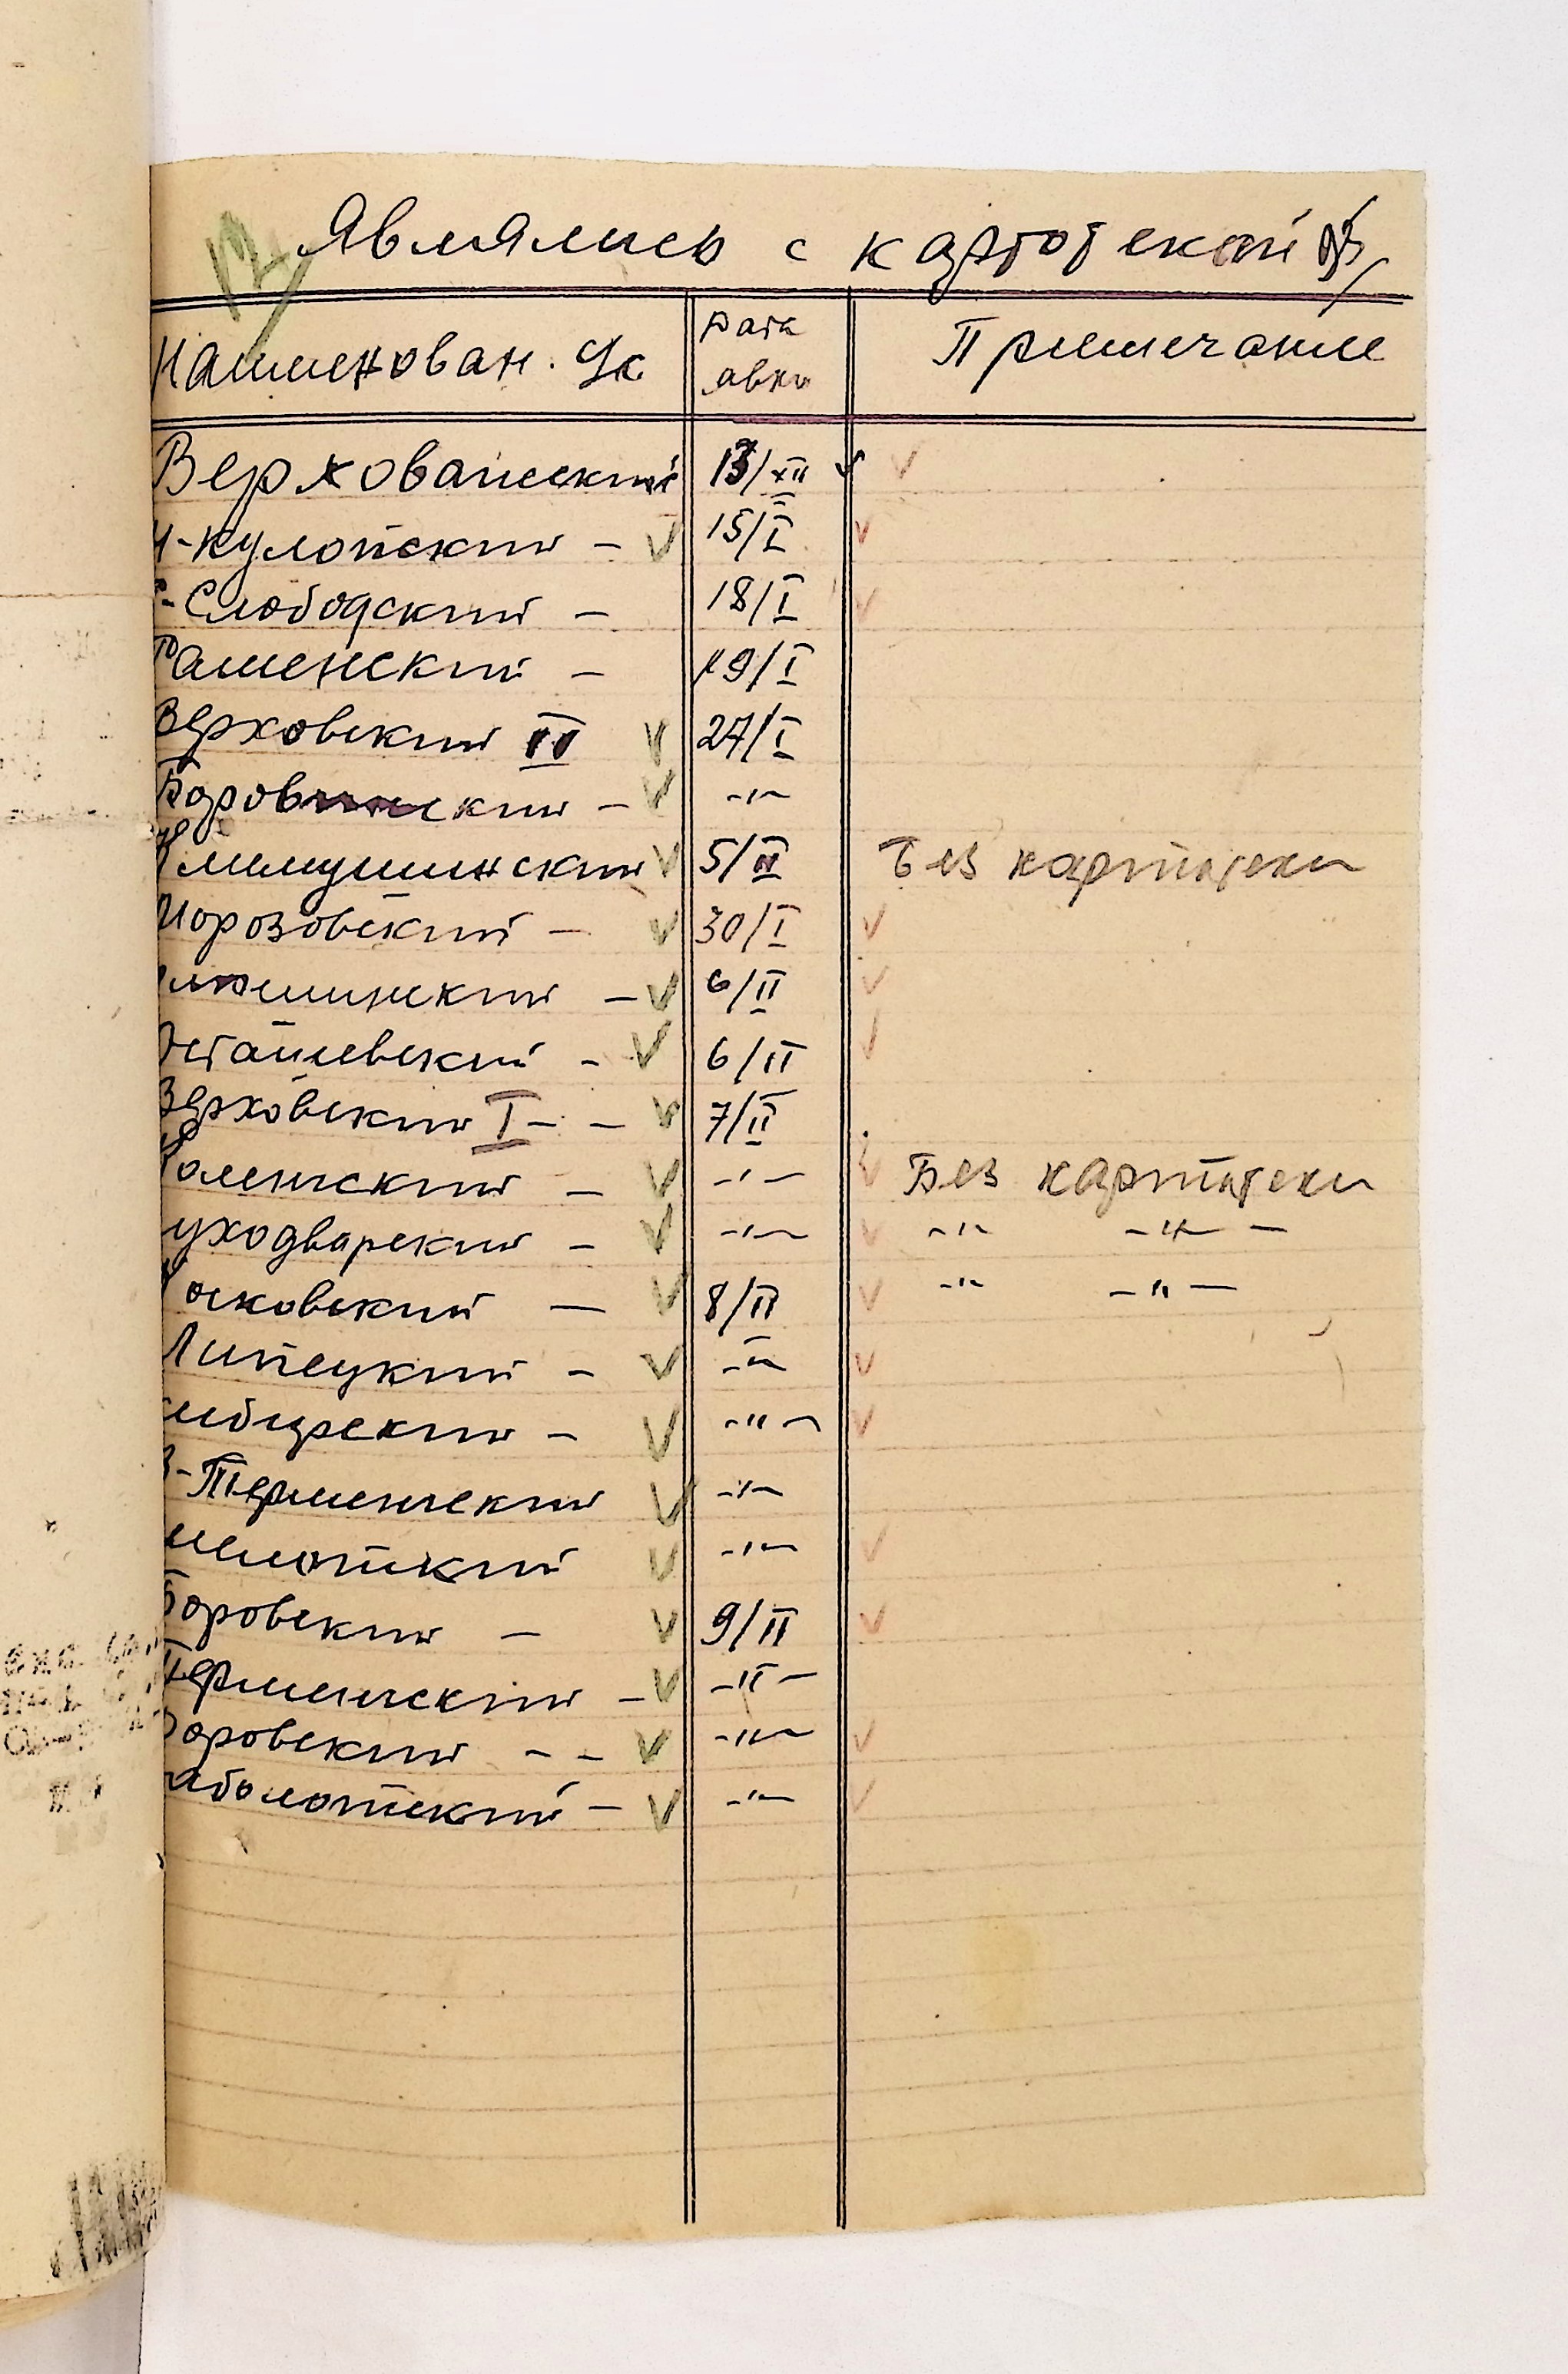 Являлись с картотекой
Наименован. Ч/с Дата явки Примечание
Верховажский 13/XII
Н-Кулойский - 15/I
С-Слободский - 18/I
Раменский - 19/I
Верховский II 27/I
Боровский - -"-
Климушинский 5/II Без картотеки
Морозовский - 30/I
люшинский - 6/II
Осташевский - 6/II
Верховский I - - 7/II
Роменский - -"- Без картотеки
уходворский - -"- -"- -"-
осковский - 8/II -"- -"-
Липецкий - -"-
ибирский - -"-
В-Терменгский -"-
Шелотский -"-
Боровский - 9/II
Терменгский - -"-
оровский - - -"-
аболотский - -"-